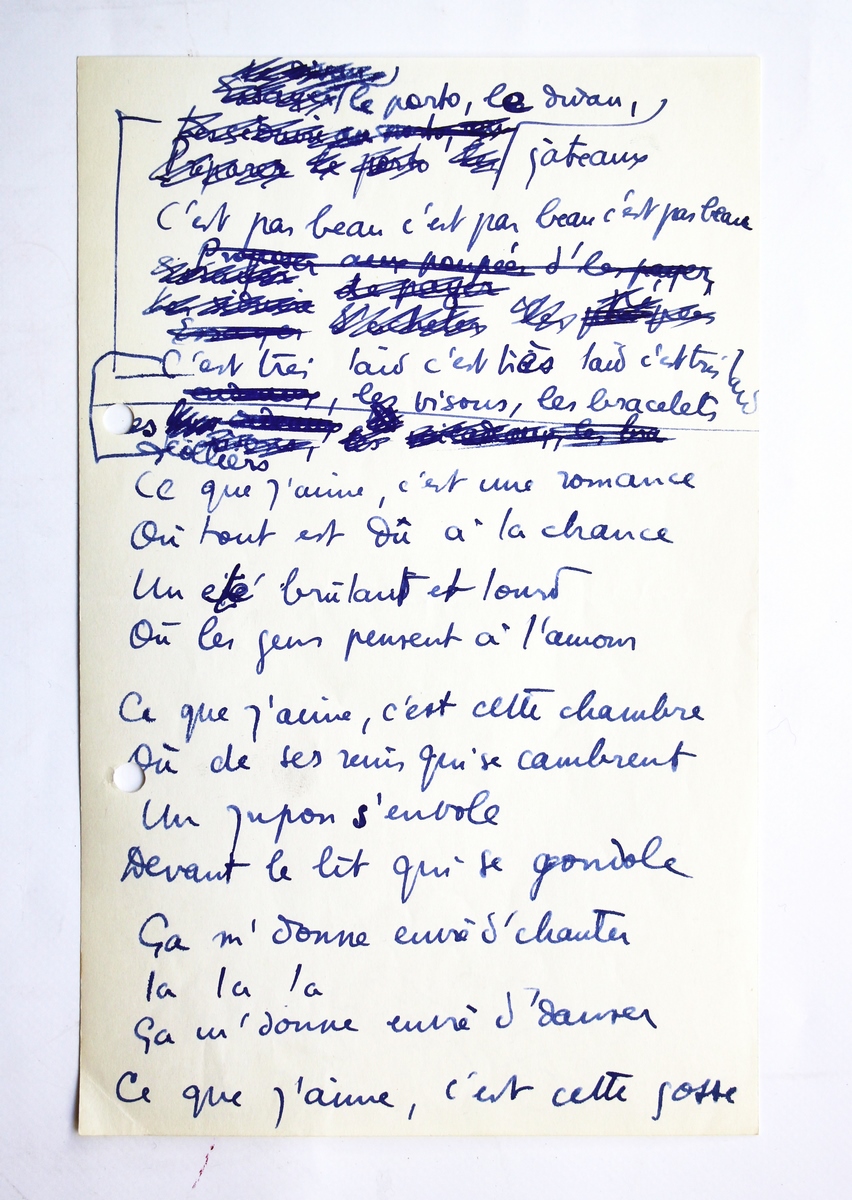 le porto, le divan,
Preparer le porto les gâteaux
C'est pas beau c'est pas beau c'est pas beau
Proposer aux poupées d'les payer
de payer
C'est très laid c'est très laid c'est très laid
cadeaux, les visons, les bracelets
les colliers
Ce que j'aime, c'est une romance
Où tout est dû à la chance
Un été brûlant et lourd
Où les gens pensent à l'amour
Ce que j'aime, c'est cette chambre
Où de ses reins qui se cambrent
Un jupon s'envole
Devant le lit qui se gondole
Ça m'donne envie d'chanter
la la la
Ça m'donne envie d'danser
Ce que j'aime, c'est cette gosse